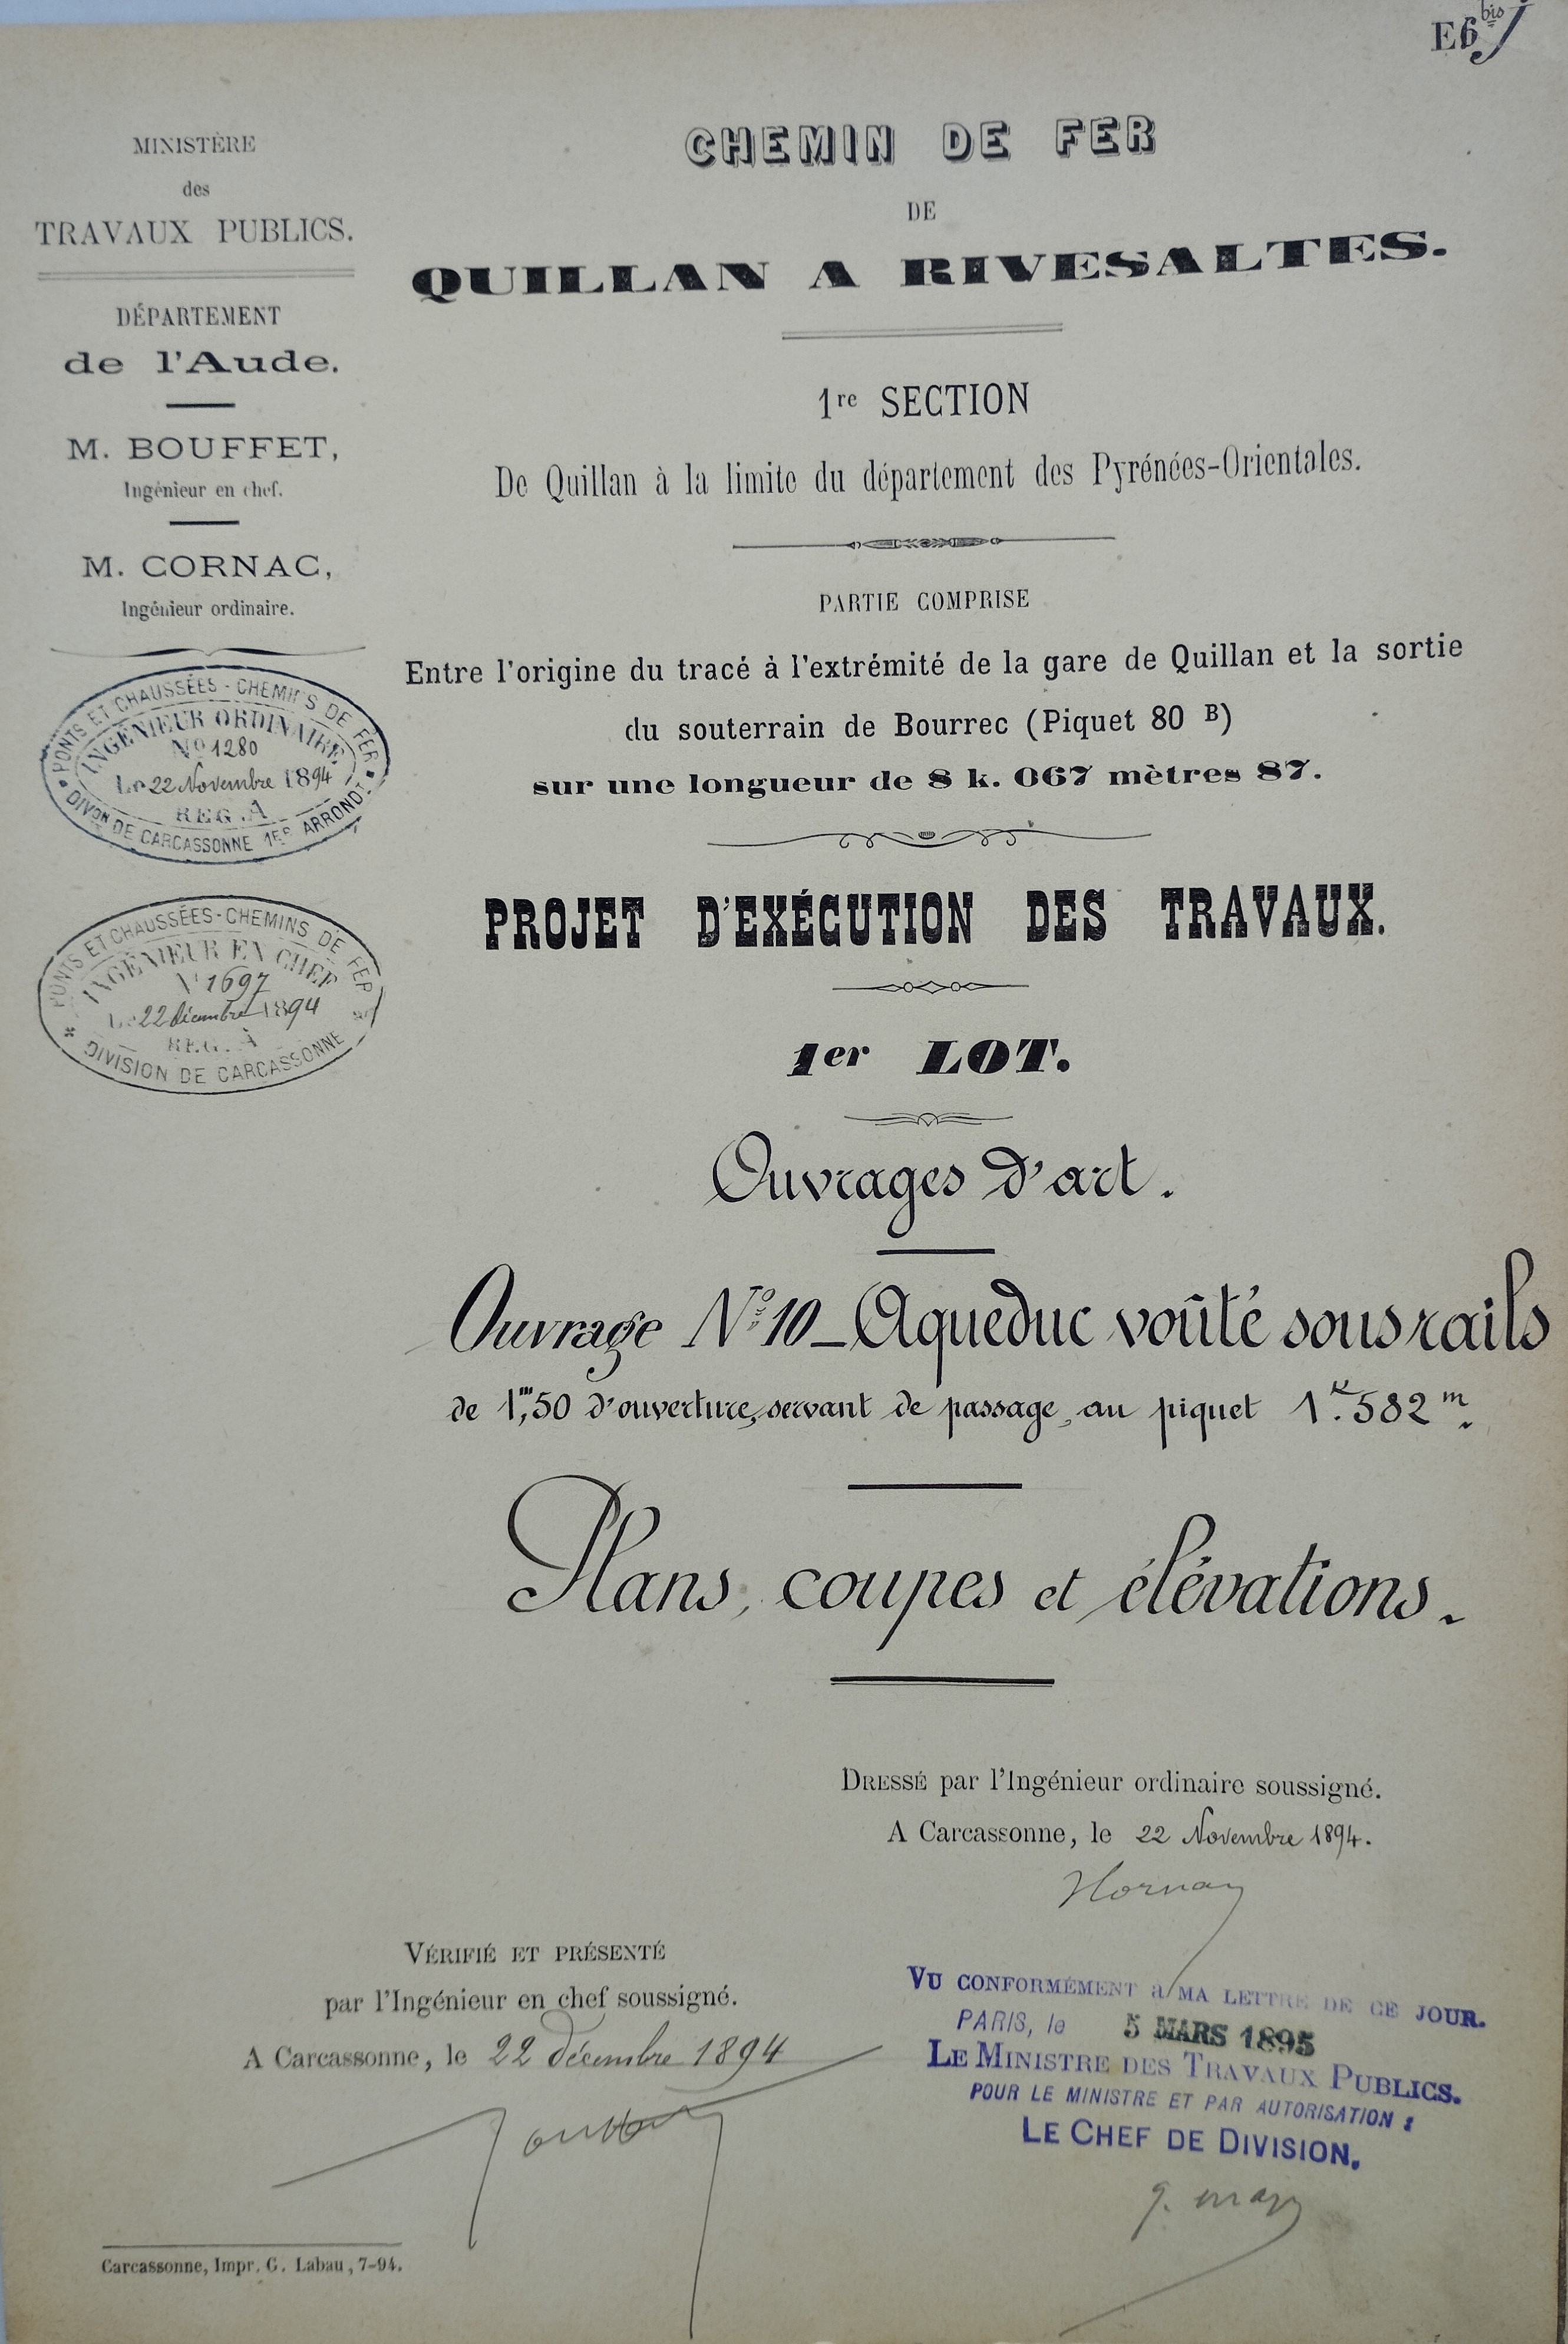 E6 bis J
MINISTÈRE
des
TRAVAUX PUBLICS.
DÉPARTEMENT
de l'Aude.
M. BOUFFET,
Ingénieur en chef.
M. CORNAC,
Ingénieur ordinaire.
PONTS ET CHAUSSÉES - CHEMINS DE FER
INGÉNIEUR ORDINAIRE
No 1280
Le 22 Novembre 1894
REG. A
DIVON DE CARCASSONNE 1ER ARRONDT
PONTS ET CHAUSSÉES - CHEMINS DE FER
INGÉNIEUR EN CHEF
No 1697
Le 22 décembre 1894
REG. A
DIVISION DE CARCASSONNE
CHEMIN DE FER
DE
QUILLAN A RIVESALTES.
1re SECTION
De Quillan à la limite du département des Pyrénées-Orientales.
PARTIE COMPRISE
Entre l'origine du tracé à l'extrémité de la gare de Quillan et la sortie
du souterrain de Bourrec (Piquet 80 B)
sur une longueur de 8 k. 067 mètres 87.
PROJET D'EXÉCUTION DES TRAVAUX.
1er LOT.
Ouvrages d'art.
Ouvrage No 10 - Aqueduc voûté sous rails
de 1m,50 d'ouverture, servant de passage, au piquet 1k.582m.
Plans, coupes et élévations.
DRESSÉ par l'Ingénieur ordinaire soussigné.
A Carcassonne, le 22 Novembre 1894.
VÉRIFIÉ ET PRÉSENTÉ
par l'Ingénieur en chef soussigné.
A Carcassonne, le 22 décembre 1894
VU CONFORMÉMENT à MA LETTRE DE CE JOUR.
PARIS, le 5 MARS 1895
LE MINISTRE DES TRAVAUX PUBLICS.
POUR LE MINISTRE ET PAR AUTORISATION :
LE CHEF DE DIVISION.
Carcassonne, Impr. G. Labau, 7-94.